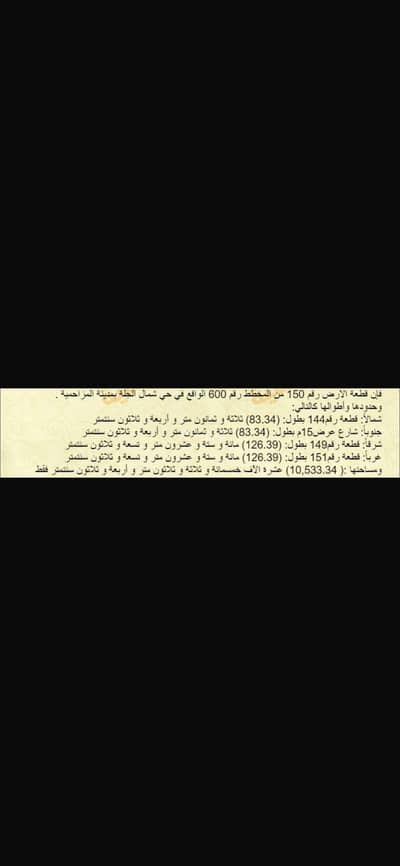 فإن قطعة الأرض رقم 150 من المخطط رقم 600 الواقع في حي شمال الجلة بمدينة المزاحمية .
وحدودها وأطوالها كالتالي:
شمالاً: قطعة رقم144 بطول: (83.34) ثلاثة و ثمانون متر و أربعة و ثلاثون سنتمتر
جنوباً: شارع عرض15م بطول: (83.34) ثلاثة و ثمانون متر و أربعة و ثلاثون سنتمتر
شرقاً: قطعة رقم149 بطول: (126.39) مائة و ستة و عشرون متر و تسعة و ثلاثون سنتمتر
غرباً: قطعة رقم151 بطول: (126.39) مائة و ستة و عشرون متر و تسعة و ثلاثون سنتمتر
ومساحتها :( 10,533.34) عشرة الآف خمسمائة و ثلاثة و ثلاثون متر و أربعة و ثلاثون سنتمتر فقط